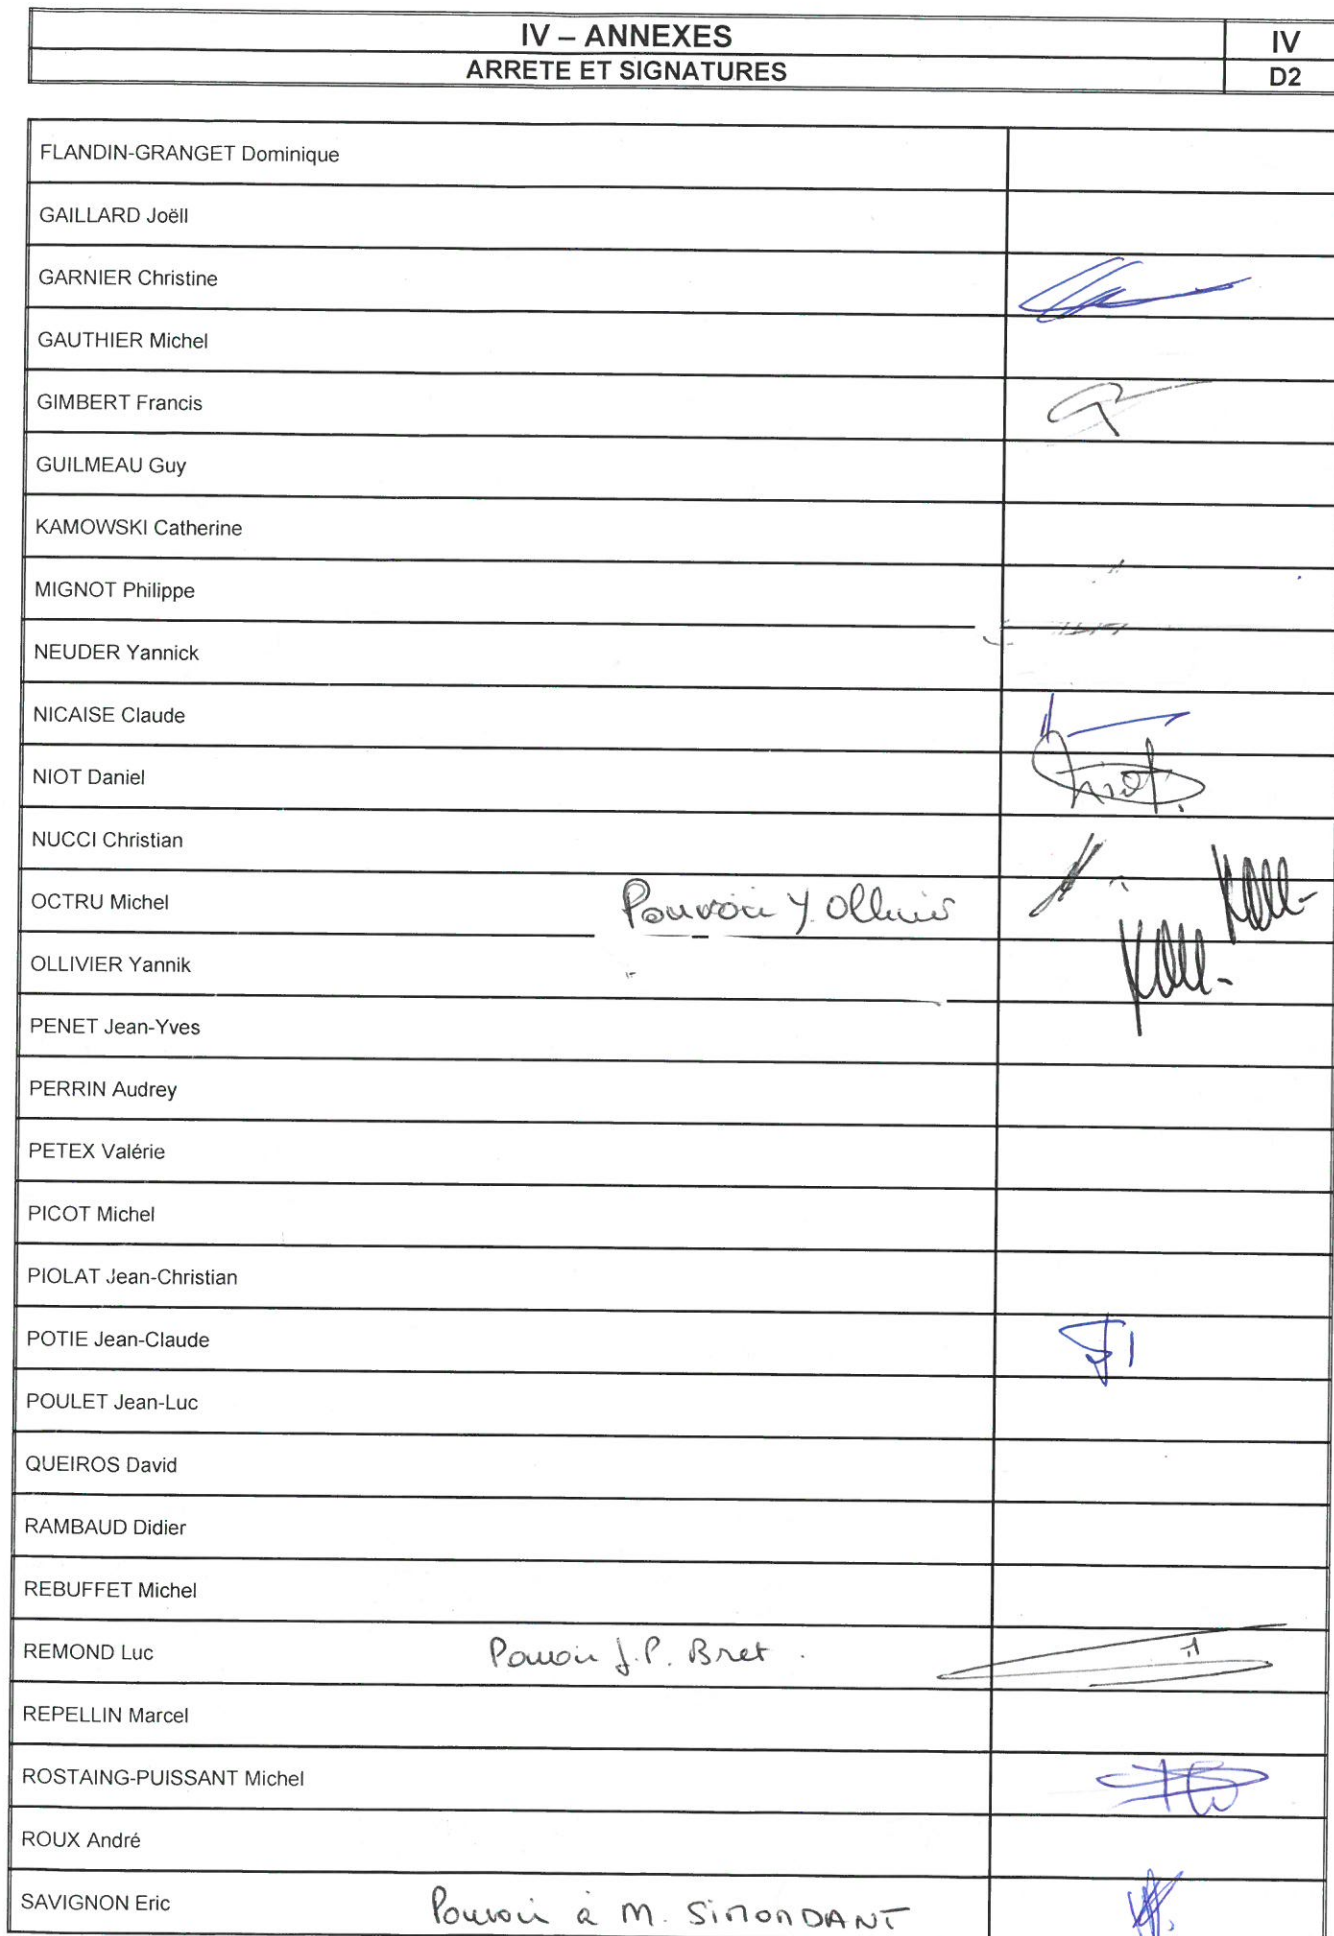 IV – ANNEXES
IV
ARRETE ET SIGNATURES
D2
FLANDIN-GRANGET Dominique
GAILLARD Joëll
GARNIER Christine
GAUTHIER Michel
GIMBERT Francis
GUILMEAU Guy
KAMOWSKI Catherine
MIGNOT Philippe
NEUDER Yannick
NICAISE Claude
NIOT Daniel
NUCCI Christian
OCTRU Michel Pouvoir Y. Ollivier
OLLIVIER Yannik
PENET Jean-Yves
PERRIN Audrey
PETEX Valérie
PICOT Michel
PIOLAT Jean-Christian
POTIE Jean-Claude
POULET Jean-Luc
QUEIROS David
RAMBAUD Didier
REBUFFET Michel
REMOND Luc Pouvoir J.P. Bret.
REPELLIN Marcel
ROSTAING-PUISSANT Michel
ROUX André
SAVIGNON Eric Pouvoir à M. SIMONDANT